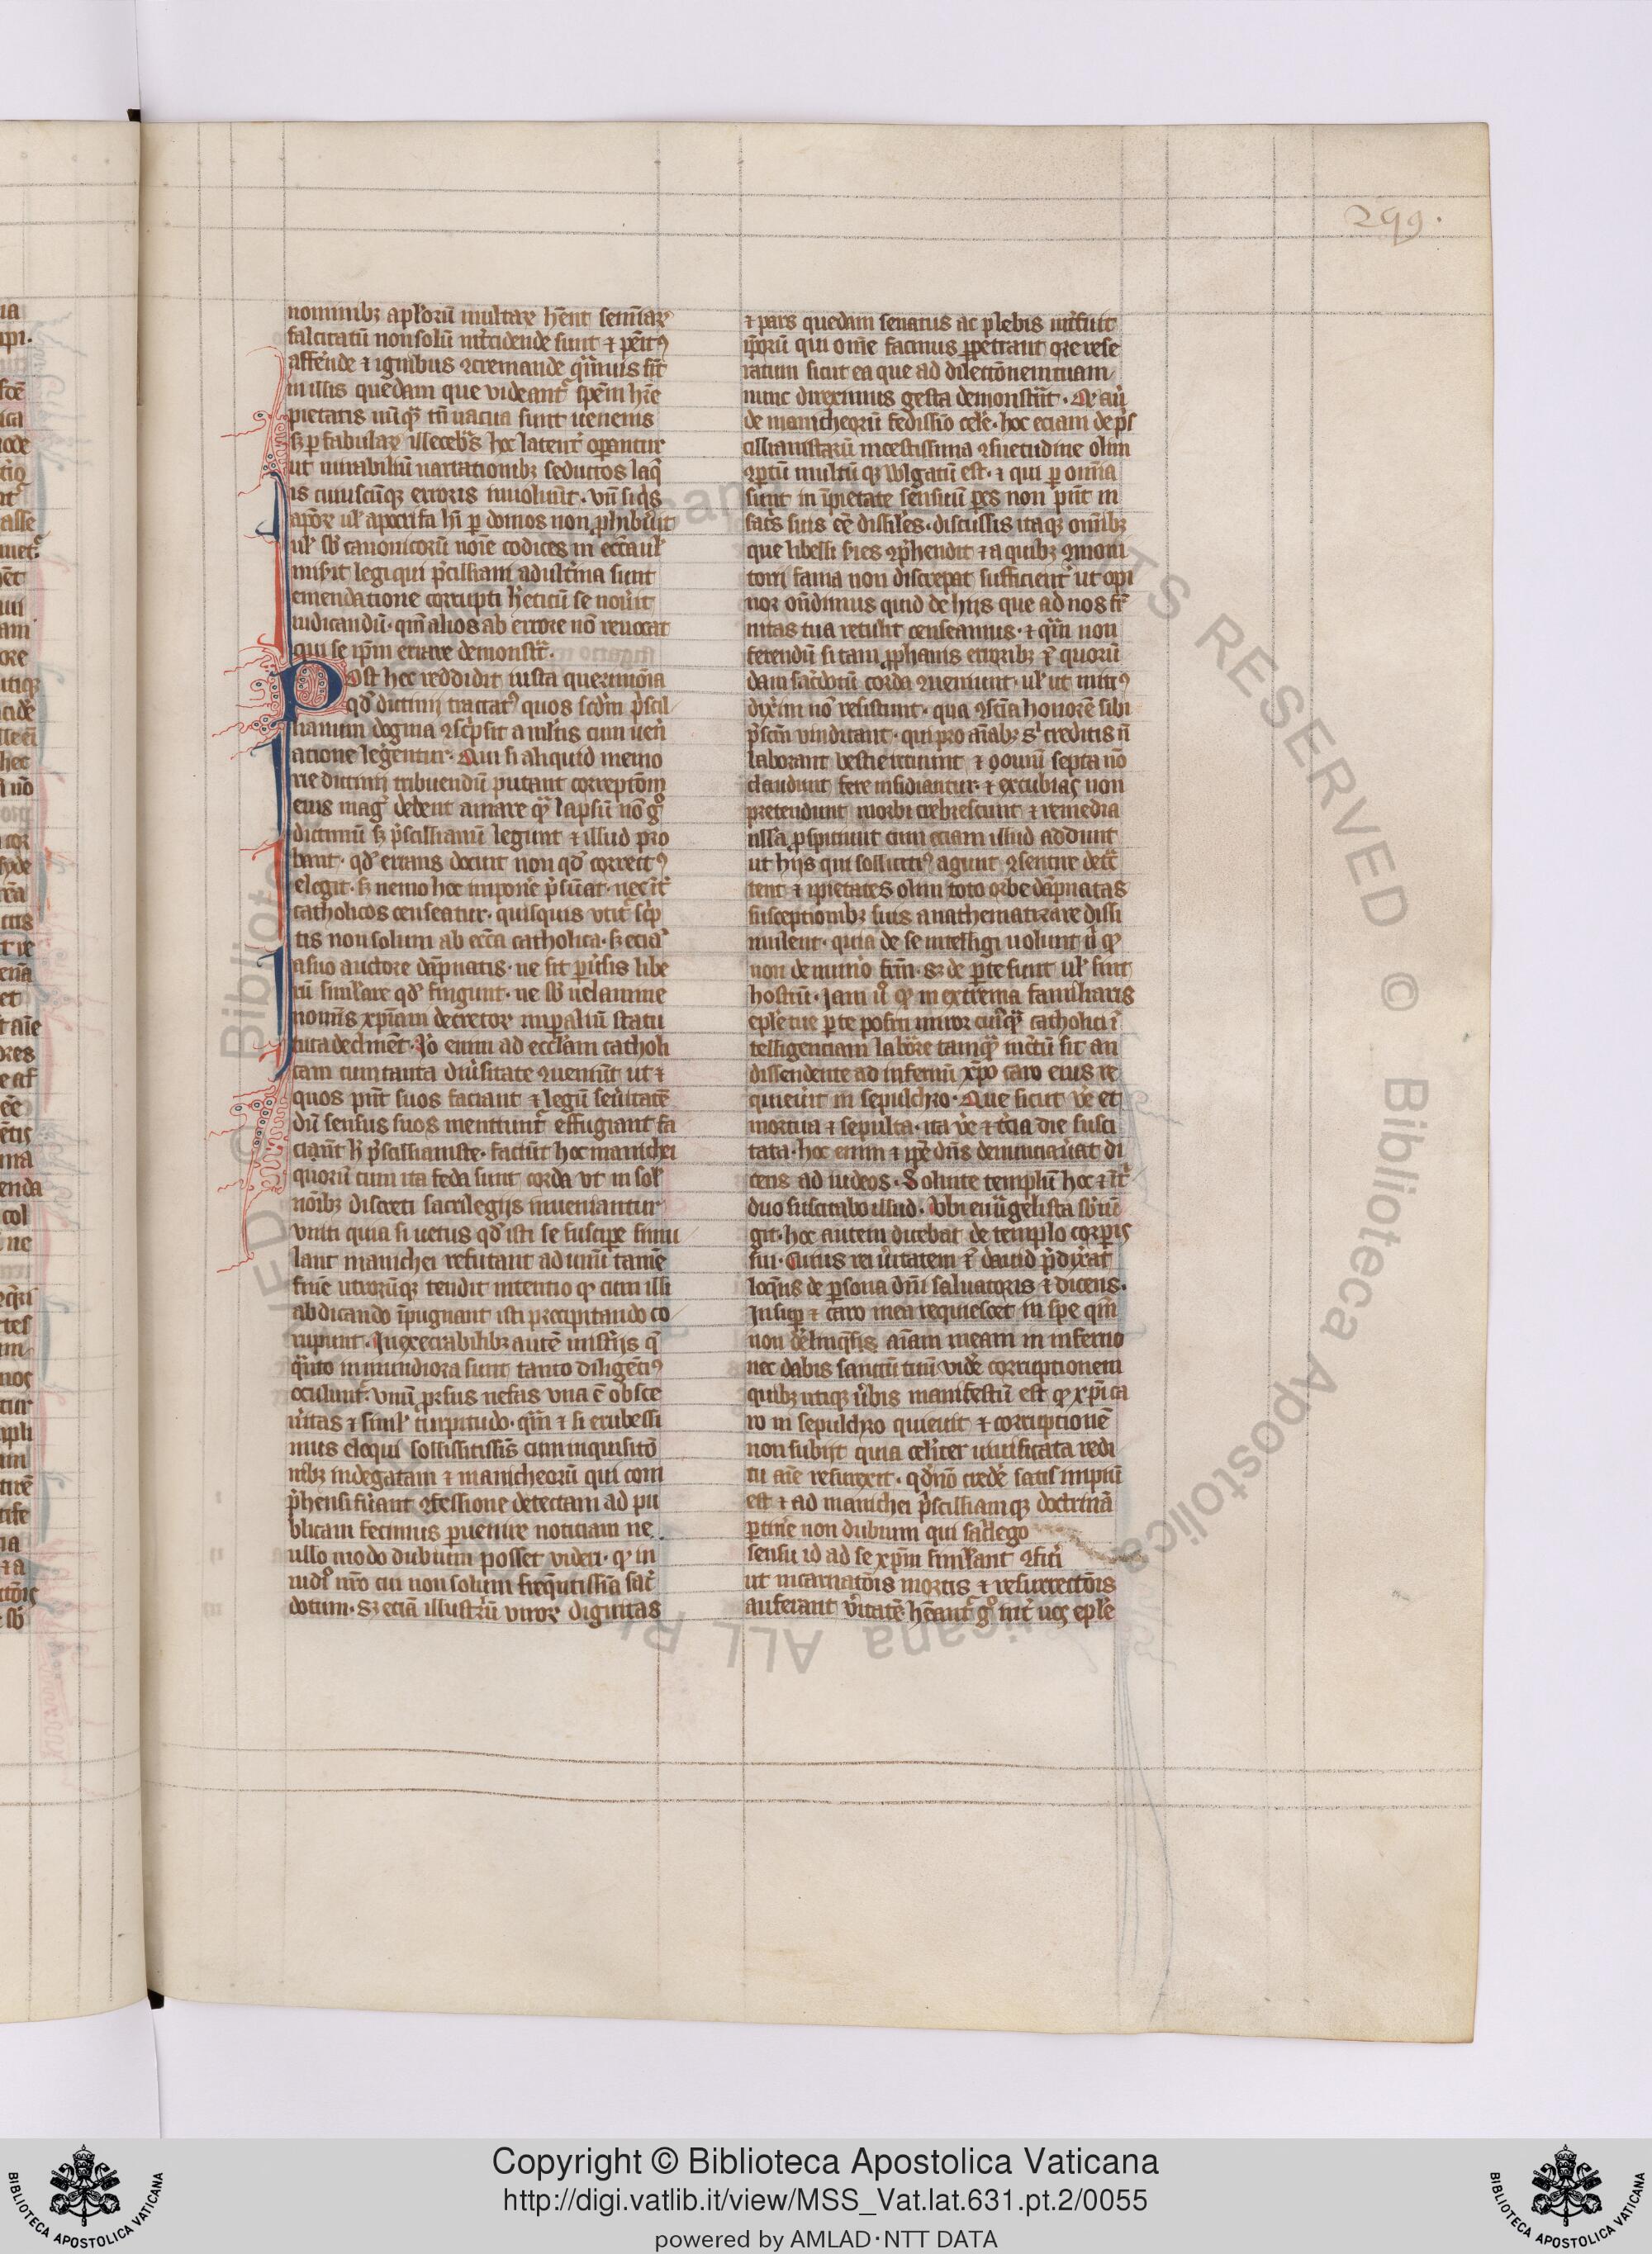 299.
nominibꝫ apl'orū multaꝝ hn̄t semīaꝝ
falcitatū non solū int̄cidende sunt ⁊ pēitꝰ
afferēde ⁊ ignibus ↄcremande q̄muis sit
in illis quedam que videant᷑ spēm hr̄e
pietatis nūqꝫ tn̄ uacua sunt uenenis
sꝫ ꝑ fabulaꝝ illecebras hoc latent᷑ oꝑantur
ut mirabiliū narrationibꝫ seductos laq̄
is cuiuscūqꝫ erroris inuoluāt. vn̄ siqͥs
ep̄oꝝ ul' apocrifa hr̄i ꝑ domos non ꝓhibuīt
ul' sb̄ canonicorū noīe codices in ecc̄a ul'
misit legi qui p̄cilliani adult̄ina sunt
emendatione corrupti hēticū se nou̾it
iudicandū. qm̄ alios ab errore nō reuocat
qui se ip̄m errare demonstrat.
Post hec reddidit iusta querimōia
qd̄ dictinij tractatꝰ quos scd̄m p̄scil
lianum dogma ↄsc̄psit a mltis cum ueñ
atione legentur. Qui si aliquid memo
rie dictinij tribuendū putant correptōm
eius magͥ debent amare qͣ lapsū nō gͦ
dictiniū sꝫ p̄scillianū legunt ⁊ illud pro
bant. qd̄ errans docuit non qd̄ correctꝰ
elegit. sꝫ nemo hoc impune p̄sūat. nec īt
catholicos censeatur. quisquis utit᷑ sc̄p
tis non solum ab ecc̄a catholica. sꝫ ecia
a suo auctore dāpnatis. ne sit ꝑu̾sis libe
rū simlare qd̄ fingunt. ne sb̄ uelamine
nomīs xp̄iani decretoꝝ imꝑaliū statu
ta declinēt. Jō enim ad eccl'am catholi
cam cum tanta diu̾sitate ↄueniūt ut ⁊
quos pn̄t suos faciant ⁊ legū seu̾itatē
dū sensus suos mentiunt᷑ effugiant fa
ciunt h̄ p̄scillianiste. faciūt hoc manichei
quorū cum ita feda sunt corda ut in sol'
noībꝫ discreti sacrilegijs inueniantur
vniti quia si uetus qd̄ isti se suscipe simu
lant manichei refutant ad unū tamē
finē utrorūqꝫ tendit intentio qꝫ cum illi
abdicando īpugnant isti precipitando co
rūpunt. In execrabilibꝫ autē mist̄ijs qͥ
qͣnto inmundiora sunt tanto diligētiꝰ
occulunt᷑. vnū ꝓrsus nefas vna ē obsce
nitas ⁊ simil' turpitudo. qm̄ ⁊ si erubessi
mus eloqui sollissitissīs cum inquisitō
nibꝫ indegatam ⁊ manicheorū qui com
p̄hensi fūant ↄfessione detectam ad pu
blicam fecimus ꝑuenire noticiam ne
ullo modo dubium posset videri. qꝫ in
iudꝰ nr̄o cui non solum freq̄ntissīa sac̄
dotum. sꝫ eciā illustrū viroꝝ dignitas
⁊ pars quedam senatus ac plebis int̄fuit
ip̄orū qui om̄e facinus ꝑpetrant ore rese
ratum sicut ea que ad dilectōnem tuam
nunc direximus gesta demonstrāt. Qd̄ aū
de manicheorū fedissīo cele'. hoc eciam de p̄s
cillianistarū incestissima ↄsuetudine olim
ↄꝑtū multū qꝫ wlgatū est. ⁊ qui ꝑ omīa
sunt in īpietate sensuū pes non pn̄t in
sacrīs suis eē dissiles. discussis itaqꝫ omībꝫ
que libelli sīes ↄp̄hendit ⁊ a quibꝫ ↄmoni
torij fama non discrepat sufficient᷑ ut opi
nor on̄dimus quid de hijs que ad nos fr̄
nitas tua retulit censeamus. ⁊ qm̄ non
ferendū si tam ꝓphanis erroribꝫ ē quorū
dam sac̄dotū corda ↄueniunt. ul' ut mitiꝰ
dix̄im nō resistunt. qua ↄsciā honorē sibi
p̄scīn vindicant. qui pro aīabꝫ sͥ creditis n̄
laborant bestie irruunt ⁊ ꝯouiū septa nō
claudunt fere insidiantur. ⁊ excubias non
pretendunt morbi crebrescunt ⁊ remedia
nlla ꝓspiciunt cum eciam illud addunt
ut hijs qui sollicitiꝰ agunt ↄsentire detͤc
tent ⁊ īpietates olim toto orbe dāpnatas
susceptionibꝫ suis anathematizare dissi
mulent. quia de se intelligi uolunt ñ qꝫ
non de numō frm̄. sꝫ de ꝑte sunt ul' sint
hostiū. Jam uͦ qꝫ in extrema familiaris
eplē tue ꝑte positū miror cuiꝰqͣ catholici ī
telligenciam laborare tamqͣ incertū sit an
dissendente ad infernū xp̄o caro eius re
quieuerit in sepulchro. Que sicut ūe et
mortua ⁊ sepulta. ita ūe ⁊ t̄cia die susci
tata. hoc enim ⁊ ip̄e dn̄s denunciau̾at di
cens ad iudeos. Soluite templū hoc ⁊ ī t
duo suscitabo illud. Vbi euāgelista sb̄iū
git. hoc autem dicebat de templo corporis
sui. Cuius rei ūitatem ē dauid p̄dix̄at
loq̄ns de ꝑsona dn̄i saluatoris ⁊ dicens.
Insuꝑ ⁊ caro mea requiescet in spe qm̄
non derelinqͣs aīam meam in inferno
nec dabis sanctū tuū vide' corruptionem
quibꝫ utiqꝫ ūbis manifestū est qꝫ xp̄i ca
ro in sepulchro quieuit ⁊ corruptionē
non subijt quia celͥter uiuificata redi
tu aīe resurexit. qd̄ nō crede' satis impiū
est ⁊ ad manichei p̄scillianiqꝫ doctrinā
ꝑtine' non dubium qui sac̄lego
sensu id ad se xp̄m simlant ↄfit̄i
ut incarnatōis mortis ⁊ resurrectōis
auferant ūitatē. heāt᷑ gͦ int̄ uos eple'
Copyright © Biblioteca Apostolica Vaticana
http://digi.vatlib.it/view/MSS_Vat.lat.631.pt.2/0055
powered by AMLAD·NTT DATA
BIBLIOTECA APOSTOLICA VATICANA
BIBLIOTECA APOSTOLICA VATICANA